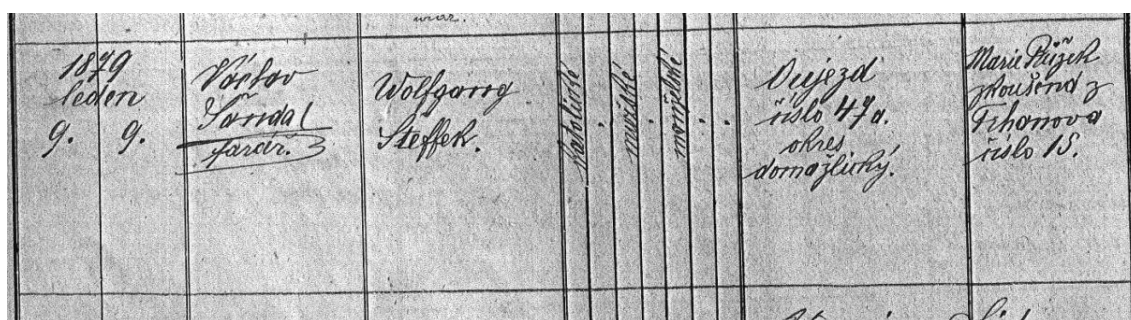 1879
leden
9. 9.
Václav
Šandal
farář.
Wolfgang
Steffek.
katolické
mužské
manželské
Oujezd
číslo 47a.
okres
domažlický.
Marie Růžek
zkoušená z
Trhanova
číslo 15.